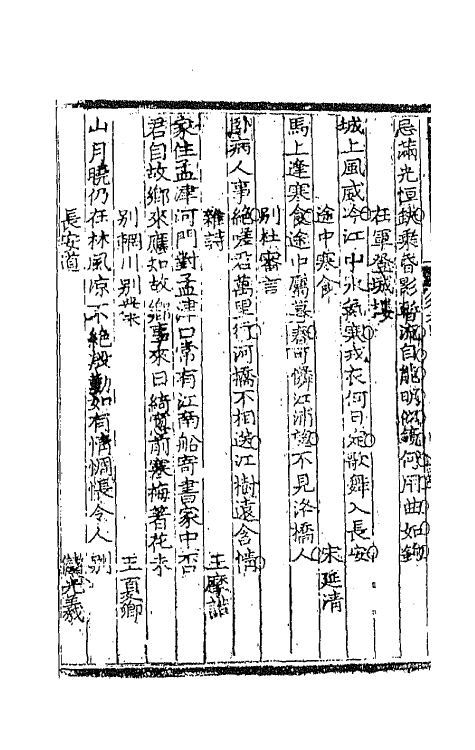 忌滿光恒缺乘昏影暫流自能明似鏡何用曲如鉤
在軍登城樓
城上風威冷江中水氣寒戎衣何日定歌舞入長安
途中寒食 宋延清
馬上逢寒食途中屬暮春可憐江浦望不見洛橋人
別杜審言
臥病人事絕嗟君萬里行河橋不相送江樹遠含情
雜詩 王摩詰
家住孟津河門對孟津口常有江南船寄書家中否
君自故鄉來應知故鄉事來日綺窗前寒梅著花未
別輞川別業 王夏卿
山月曉仍在林風涼不絕殷勤如有情惆悵令人別
長安道 儲光羲